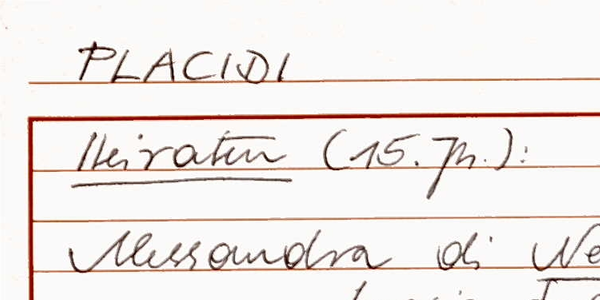 PLACIDI
Heiraten (15. Jh.):
Alessandra di